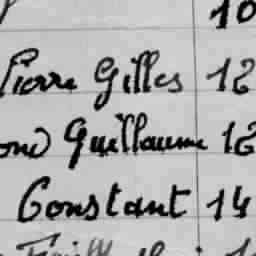 10
Pierre Gilles 12
ond Guillaume 12
Constant 14